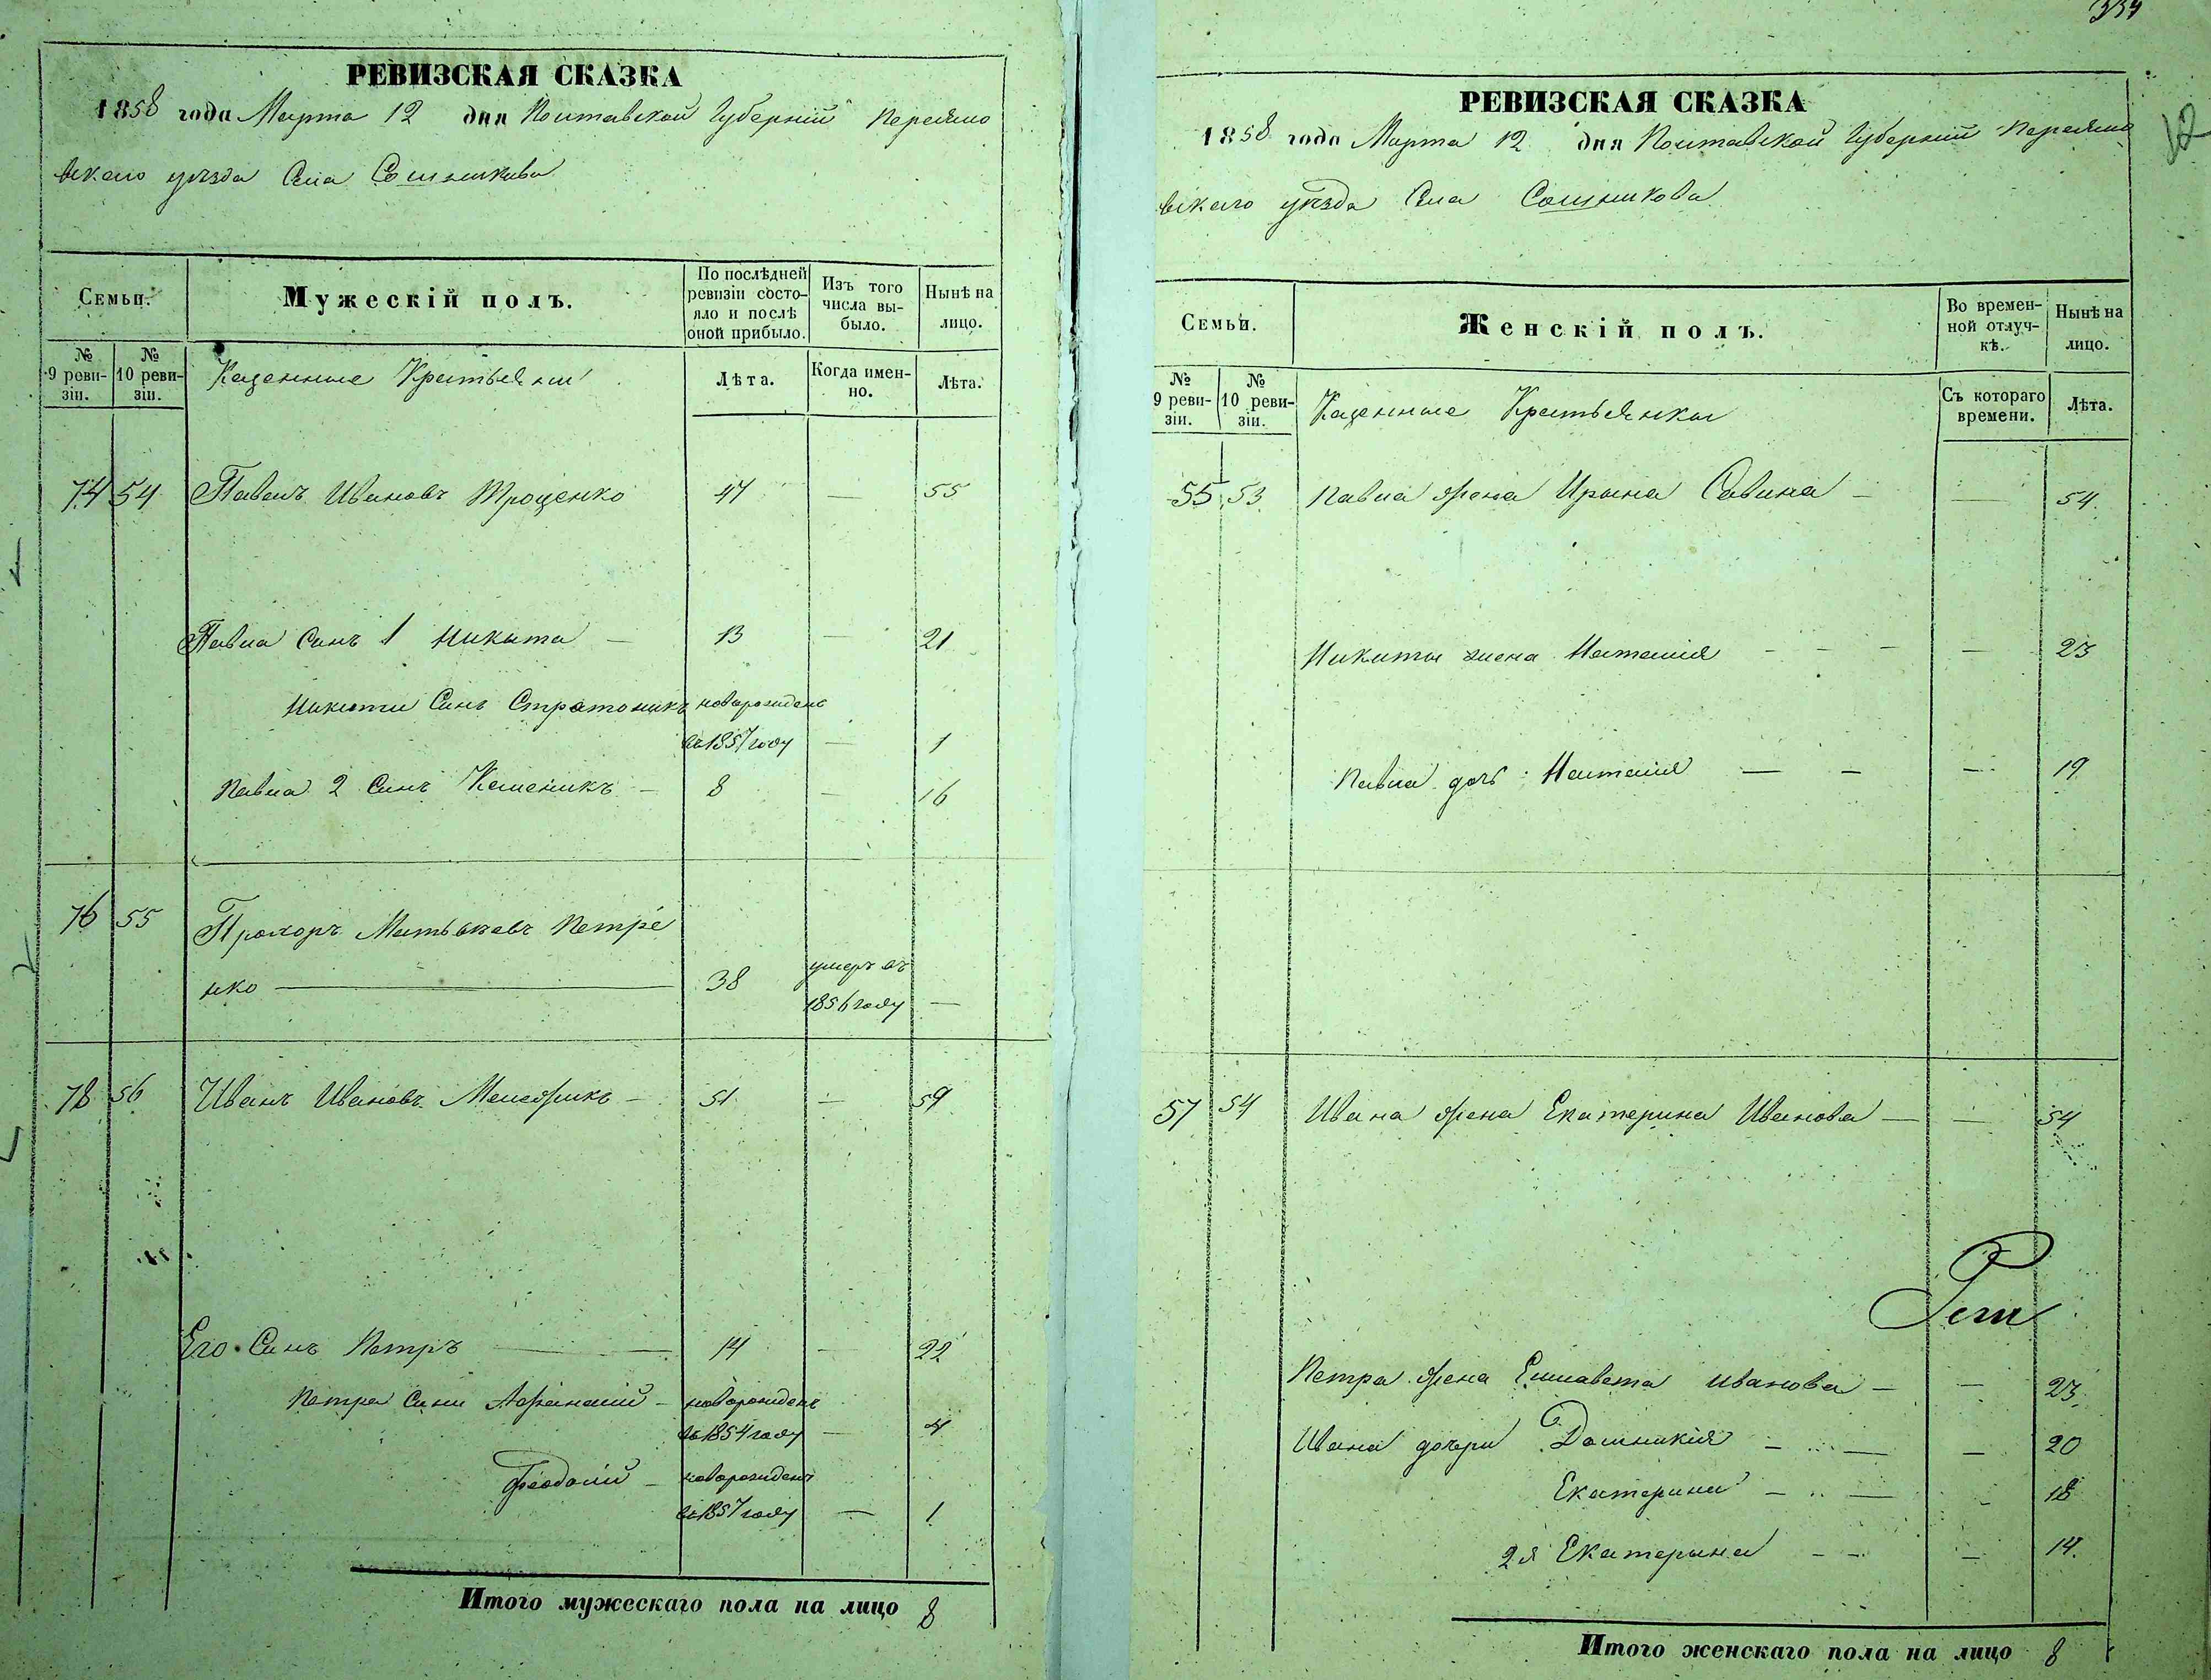 354
РЕВИЗСКАЯ СКАЗКА
1858 года Марта 12 дня Полтавской Губерніи Переясло
вскаго уѣзда Села Сошникова
Семьи. Мужескій полъ. По послѣдней ревизіи состояло и послѣ оной прибыло. Изъ того числа выбыло. Нынѣ на лицо.
№ 9 ревизіи. № 10 ревизіи. Казенные Крестьяни Лѣта. Когда именно. Лѣта.
74 54 Павелъ Ивановъ Троценко 47 — 55
Павла Синъ 1 Никита — 13 — 21
Никити Синъ Стратоникъ новорожденъ
въ 1857 году — 1
Павла 2 Синъ Калѣникъ — 8 — 16
76 55 Прохоръ Матвѣевъ Петре
нко — 38 умеръ въ
1856 году —
78 56 Иванъ Ивановъ — 51 — 59
Его Синъ Петръ — 14 — 22
Петра Сини Афанасій — новорожденъ
въ 1854 году — 4
Феодосій — новорожденъ
въ 1857 году — 1
Итого мужескаго пола на лицо 8
РЕВИЗСКАЯ СКАЗКА
1858 года Марта 12 дня Полтавской Губерніи Переясло
вскаго уѣзда Села Сошникова
12
Семьи. Женскій полъ. Во временной отлучкѣ. Нынѣ на лицо.
№ 9 ревизіи. № 10 ревизіи. Казенные Крестьянки Съ котораго времени. Лѣта.
55 53 Павла жена Ирина Савина — — 54
Никиты жена Наталія — — — — 23
Павла дочь Наталія — — — 19
57 54 Ивана жена Екатерина Иванова — — 54
Петра жена Елисавета Иванова — — 23
Ивана дочери Домникія — — — 20
Екатерина — — — 18
2я Екатерина — — — 14
Итого женскаго пола на лицо 8